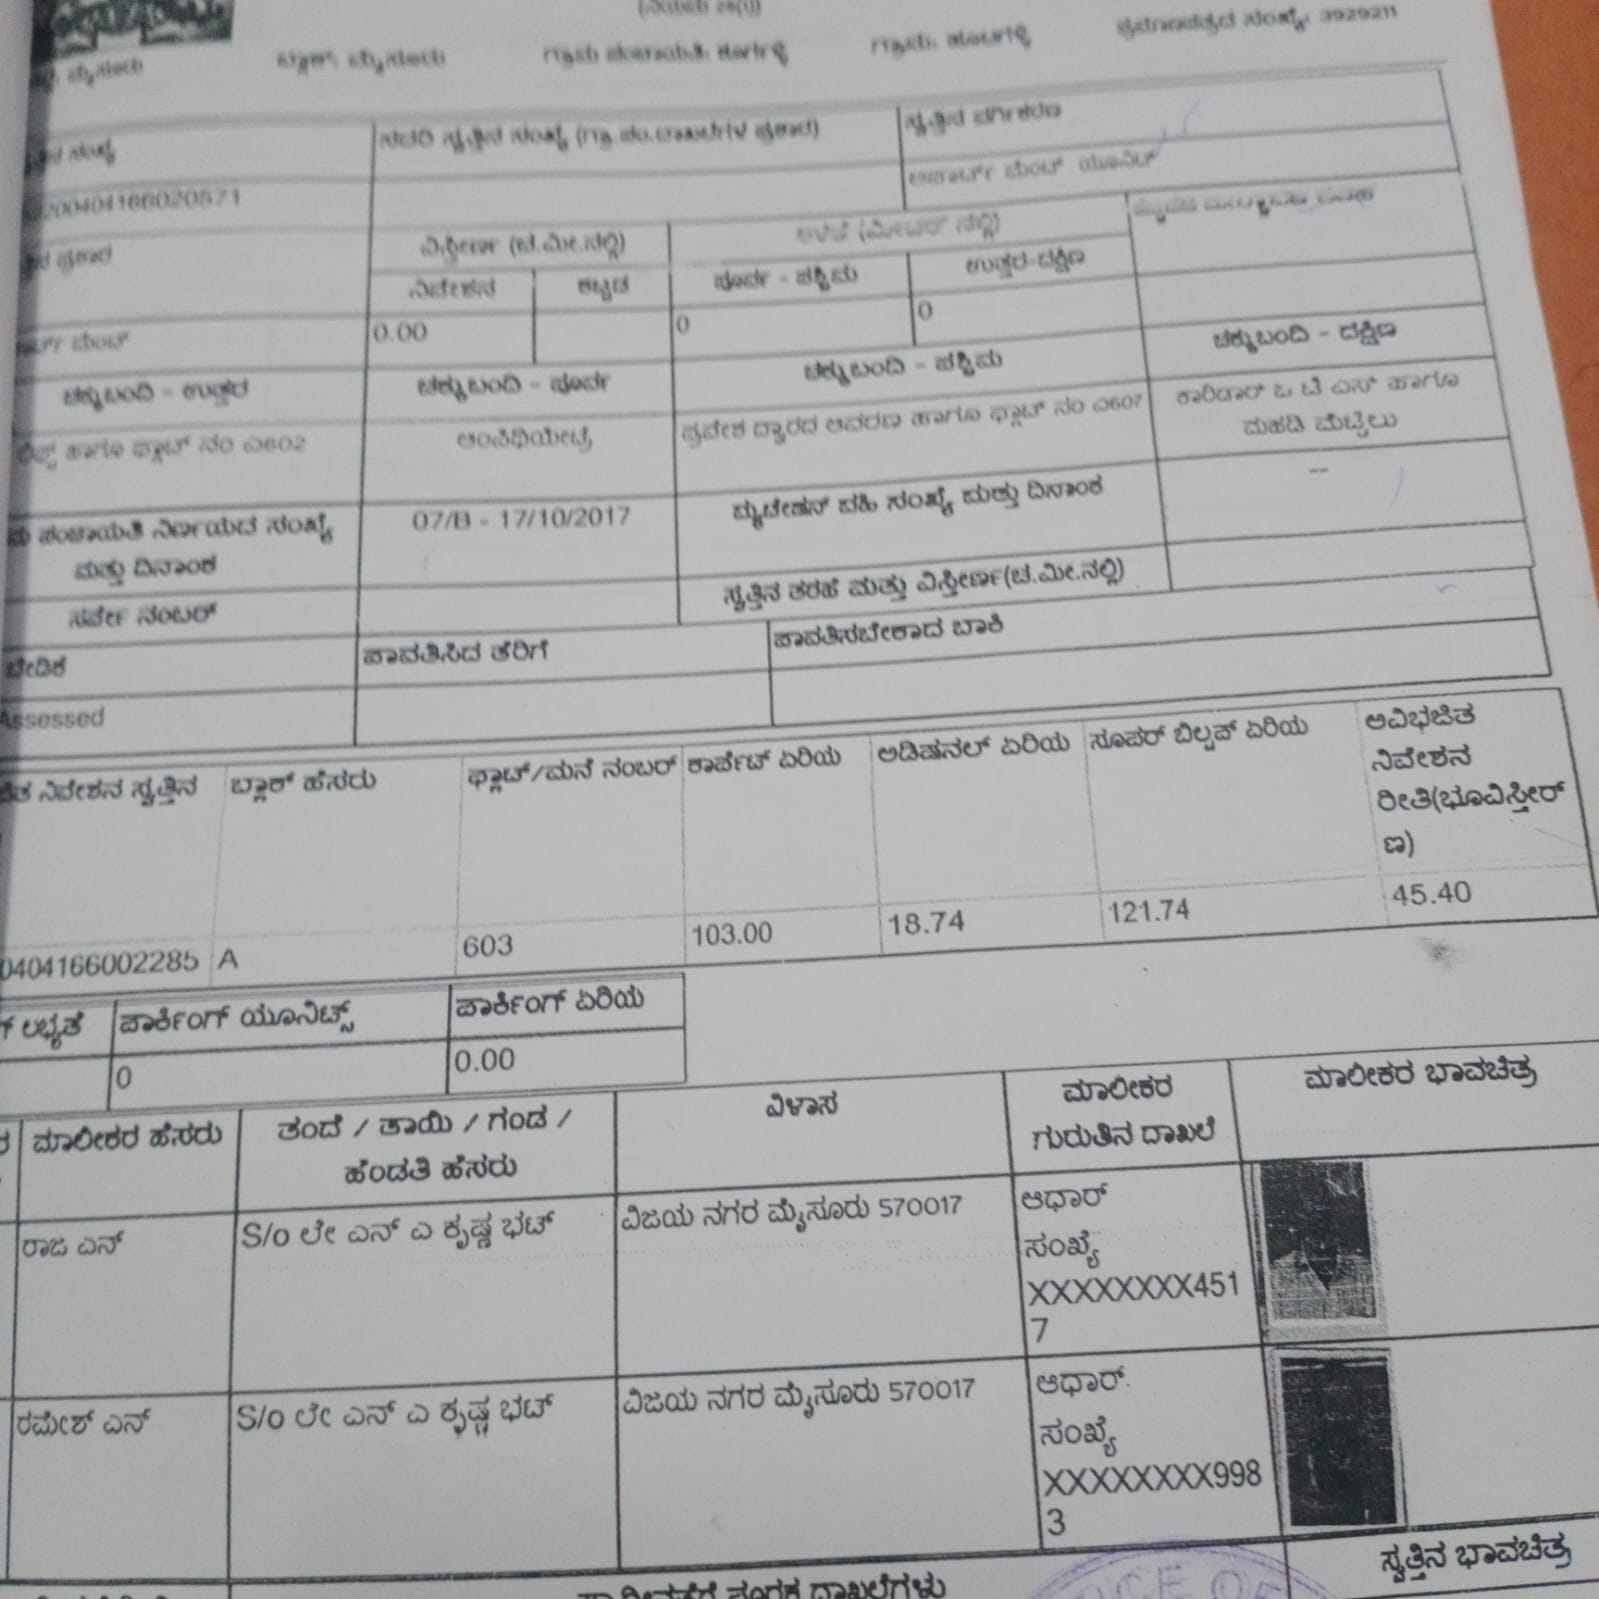 (ನಿಯಮ 28(1))
ಮೈಸೂರು ಮೈಸೂರು ಗ್ರಾಮ ಪಂಚಾಯತಿ: ಗ್ರಾಮ: ಪ್ರಮಾಣಪತ್ರದ ಸಂಖ್ಯೆ: 3929211
ಸ್ವತ್ತಿನ ಸಂಖ್ಯೆ ಸದರಿ ಸ್ವತ್ತಿನ ಸಂಖ್ಯೆ (ಗ್ರಾ.ಪಂ.ದಾಖಲೆಗಳ ಪ್ರಕಾರ) ಸ್ವತ್ತಿನ ವರ್ಗೀಕರಣ
200404166020571 ಅಪಾರ್ಟ್ ಮೆಂಟ್ ಯೂನಿಟ್
ಪ್ರಕಾರ ವಿಸ್ತೀರ್ಣ (ಚ.ಮೀ.ನಲ್ಲಿ) ಅಳತೆ (ಮೀಟರ್ ನಲ್ಲಿ)
ನಿವೇಶನ ಕಟ್ಟಡ ಪೂರ್ವ - ಪಶ್ಚಿಮ ಉತ್ತರ-ದಕ್ಷಿಣ
ಮೆಂಟ್ 0.00 0 0
ಚಕ್ಕುಬಂದಿ - ಉತ್ತರ ಚಕ್ಕುಬಂದಿ - ಪೂರ್ವ ಚಕ್ಕುಬಂದಿ - ಪಶ್ಚಿಮ ಚಕ್ಕುಬಂದಿ - ದಕ್ಷಿಣ
ಹಾಗೂ ಫ್ಲಾಟ್ ನಂ ಎ602 ಆಂಪಿಥಿಯೇಟ್ರೆ ಪ್ರವೇಶ ದ್ವಾರದ ಆವರಣ ಹಾಗೂ ಫ್ಲಾಟ್ ನಂ ಎ607 ಕಾರಿಡಾರ್ ಒ ಟಿ ಎಸ್ ಹಾಗೂ
ಮಹಡಿ ಮೆಟ್ಟಿಲು
ಪಂಚಾಯತಿ ನಿರ್ಣಯದ ಸಂಖ್ಯೆ 07/B - 17/10/2017 ಮ್ಯುಟೇಶನ್ ವಹಿ ಸಂಖ್ಯೆ ಮತ್ತು ದಿನಾಂಕ --
ಮತ್ತು ದಿನಾಂಕ
ಸರ್ವೇ ನಂಬರ್ ಸ್ವತ್ತಿನ ತರಹೆ ಮತ್ತು ವಿಸ್ತೀರ್ಣ(ಚ.ಮೀ.ನಲ್ಲಿ)
ಬೇಡಿಕೆ ಪಾವತಿಸಿದ ತೆರಿಗೆ ಪಾವತಿಸಬೇಕಾದ ಬಾಕಿ
Assessed
ನಿವೇಶನ ಸ್ವತ್ತಿನ ಬ್ಲಾಕ್ ಹೆಸರು ಫ್ಲಾಟ್/ಮನೆ ನಂಬರ್ ಕಾರ್ಪೆಟ್ ಏರಿಯ ಅಡಿಷನಲ್ ಏರಿಯ ಸೂಪರ್ ಬಿಲ್ಟಪ್ ಏರಿಯ ಅವಿಭಜಿತ
ನಿವೇಶನ
ರೀತಿ(ಭೂವಿಸ್ತೀರ್
ಣ)
0404166002285 A 603 103.00 18.74 121.74 45.40
ಲಭ್ಯತೆ ಪಾರ್ಕಿಂಗ್ ಯೂನಿಟ್ಸ್ ಪಾರ್ಕಿಂಗ್ ಏರಿಯ
0 0.00
ಮಾಲೀಕರ ಹೆಸರು ತಂದೆ / ತಾಯಿ / ಗಂಡ / ವಿಳಾಸ ಮಾಲೀಕರ ಮಾಲೀಕರ ಭಾವಚಿತ್ರ
ಹೆಂಡತಿ ಹೆಸರು ಗುರುತಿನ ದಾಖಲೆ
ರಾಜ ಎನ್ S/o ಲೇ ಎನ್ ಎ ಕೃಷ್ಣ ಭಟ್ ವಿಜಯ ನಗರ ಮೈಸೂರು 570017 ಆಧಾರ್
ಸಂಖ್ಯೆ
XXXXXXXX451
7
ರಮೇಶ್ ಎನ್ S/o ಲೇ ಎನ್ ಎ ಕೃಷ್ಣ ಭಟ್ ವಿಜಯ ನಗರ ಮೈಸೂರು 570017 ಆಧಾರ್
ಸಂಖ್ಯೆ
XXXXXXXX998
3
ದಾಖಲೆಗಳು ಸ್ವತ್ತಿನ ಭಾವಚಿತ್ರ